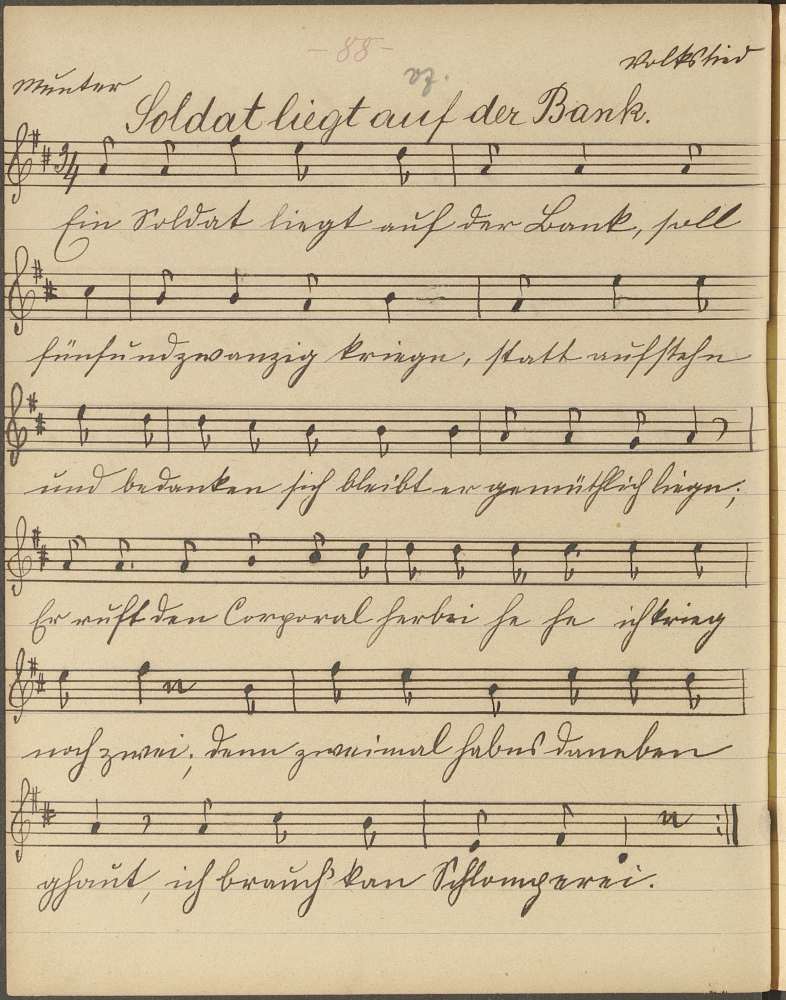 - 88 -
Volkslied
Munter
Soldat liegt auf der Bank.
3/4
Ein Soldat liegt auf der Bank, soll
fünfundzwanzig kriegn, statt aufstehn
und bedanken sich bleibt er gemüthlich liegn;
Er ruft den Corporal herbei he he ich krieg
noch zwei; denn zweimal habns daneben
ghaut, ich brauch' kan Schlamperei.